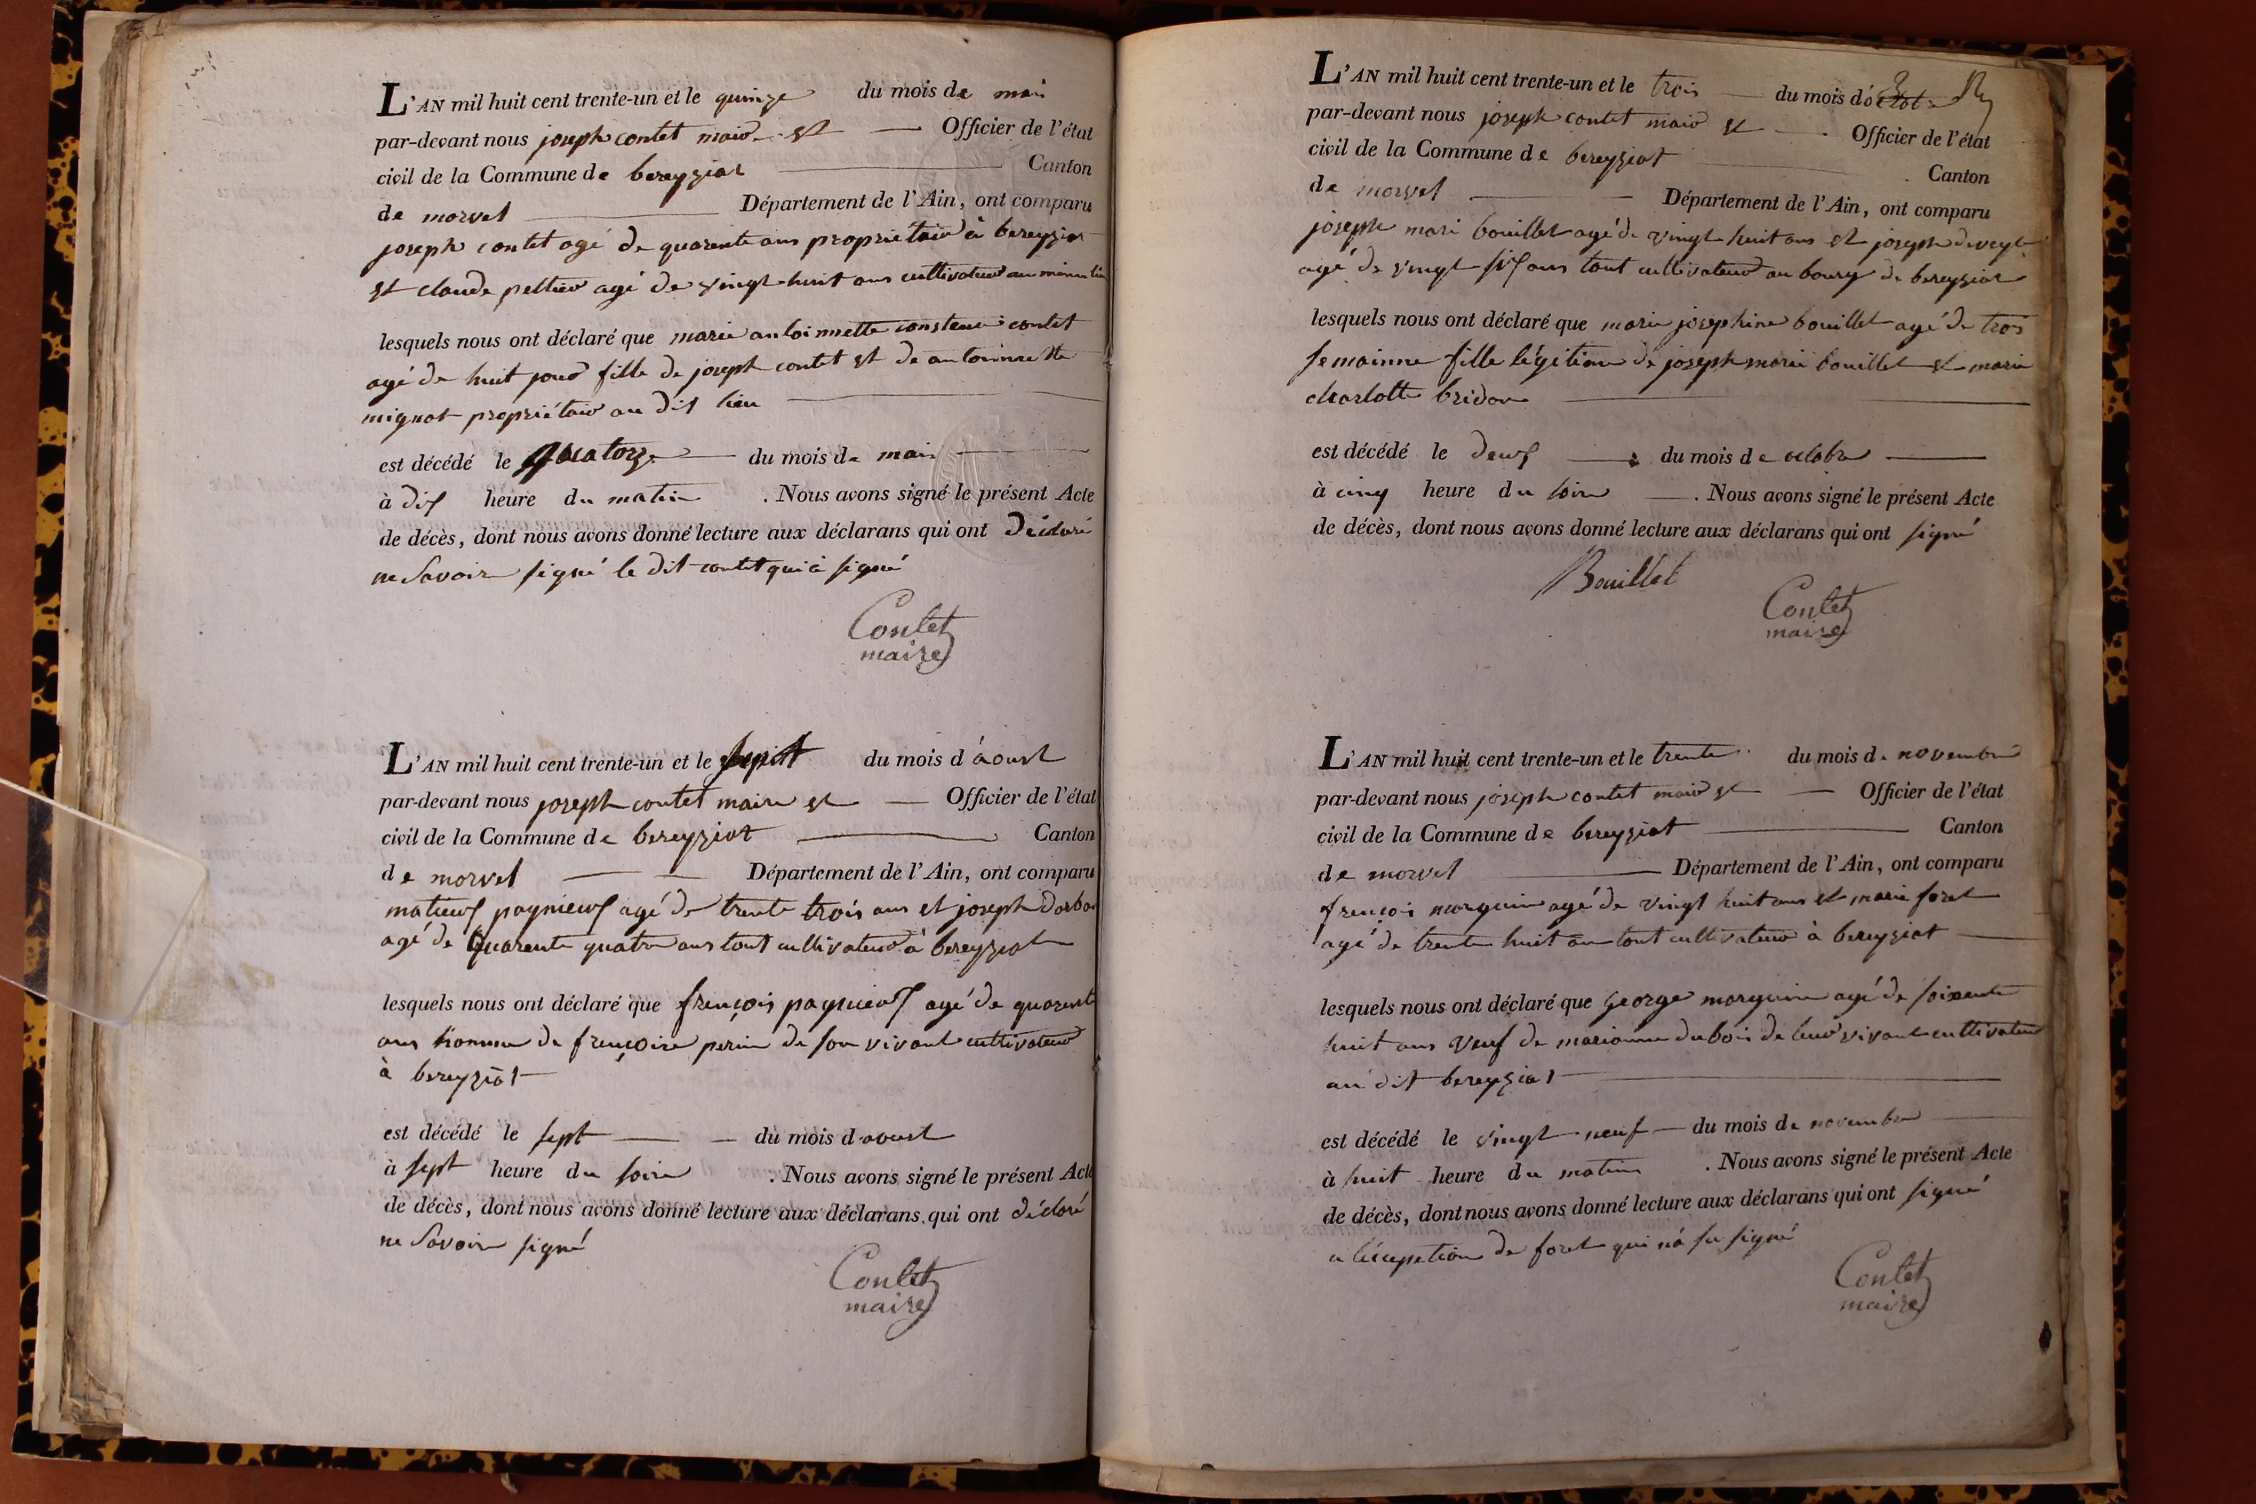 L'AN mil huit cent trente-un et le quinze du mois de mai
par-devant nous joseph contet maire et Officier de l'état
civil de la Commune de bereyziat Canton
de morvel Département de l'Ain, ont comparu
joseph contet agé de quarente ans propriétaire à bereyziat
et claude peltier agé de vingt huit ans cultivateur au même lieu
lesquels nous ont déclaré que marie antoinnette constence contet
agé de huit jour fille de joseph contet et de antoinnette
mignot propriétair au dit lieu
est décédé le quatorze du mois de mai
à dix heure du matin . Nous avons signé le présent Acte
de décès, dont nous avons donné lecture aux déclarans qui ont déclaré
ne savoir signé le dit contet qui à signé
Contet
maire
L'AN mil huit cent trente-un et le du mois d'aoust
par-devant nous joseph contet maire et Officier de l'état
civil de la Commune de bereyziat Canton
de morvel Département de l'Ain, ont comparu
matieux pagnieux agé de trente trois ans et joseph
agé de quarente quatre ans tout cultivateur à bereyziat
lesquels nous ont déclaré que françois pagnieux agé de quarente
ans homme de françoise perin de son vivant cultivateur
à bereyziat
est décédé le sept du mois d'aoust
à sept heure du soire . Nous avons signé le présent Acte
de décès, dont nous avons donné lecture aux déclarans qui ont déclaré
ne savoir signé
Contet
maire
L'AN mil huit cent trente-un et le trois du mois d'
par-devant nous joseph contet maire et Officier de l'état
civil de la Commune de bereyziat Canton
de morvel Département de l'Ain, ont comparu
joseph mari bouillet agé de vingt huit ans et joseph
agé de vingt six ans tout cultivateur au bourg de bereyziat
lesquels nous ont déclaré que marie josephine bouillet agé de trois
semainne fille légitime de joseph marie bouillet et marie
charlotte bridon
est décédé le deux du mois de octobre
à cinq heure du soire . Nous avons signé le présent Acte
de décès, dont nous avons donné lecture aux déclarans qui ont signé
Bouillet
Contet
maire
L'AN mil huit cent trente-un et le trente du mois de novembre
par-devant nous joseph contet maire et Officier de l'état
civil de la Commune de bereyziat Canton
de morvel Département de l'Ain, ont comparu
françois morguin agé de vingt huit ans et marie foret
agé de trente huit an tout cultivateur à bereyziat
lesquels nous ont déclaré que George morguin agé de soixente
huit ans veuf de marianne dubois de leur vivant cultivateur
au dit bereyziat
est décédé le vingt neuf du mois de novembre
à huit heure du matin . Nous avons signé le présent Acte
de décès, dont nous avons donné lecture aux déclarans qui ont signé
a de foret qui n'a su signé
Contet
maire